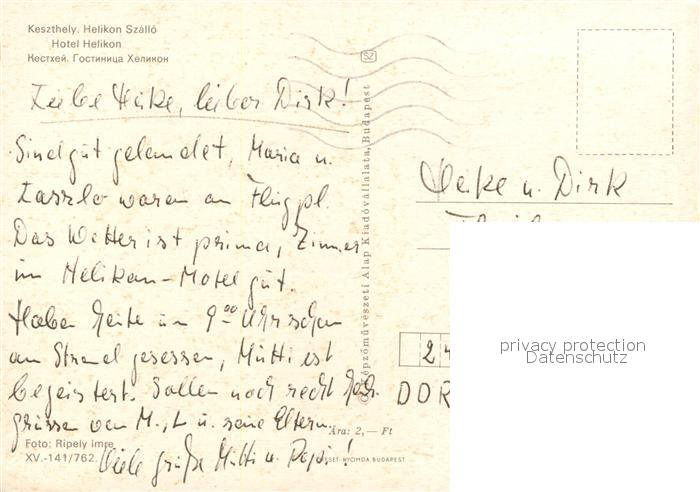 Keszthely. Helikon Szálló
Hotel Helikon
Кестхей. Гостиница Хеликон
SZ
Liebe Heike, lieber Dirk!
Sind gut gelandet, Maria u.
Laszlo waren am Flugpl.
Das Wetter ist prima, Zimmer
im Helikon-Motel gut.
Haben Heute um 9⁰⁰ Uhr schon
am Strand gesessen, Mutti ist
begeistert. Sollen noch recht
grüssen von M., L u. seine Eltern.
Viele grüße Mutti u. Papi!
Foto: Ripely Imre
XV.-141/762.
Képzőművészeti Alap Kiadóvállalata, Budapest
Ára: 2,— Ft
SET-NYOMDA BUDAPEST
Heike u. Dirk
2
DOR
privacy protection
Datenschutz